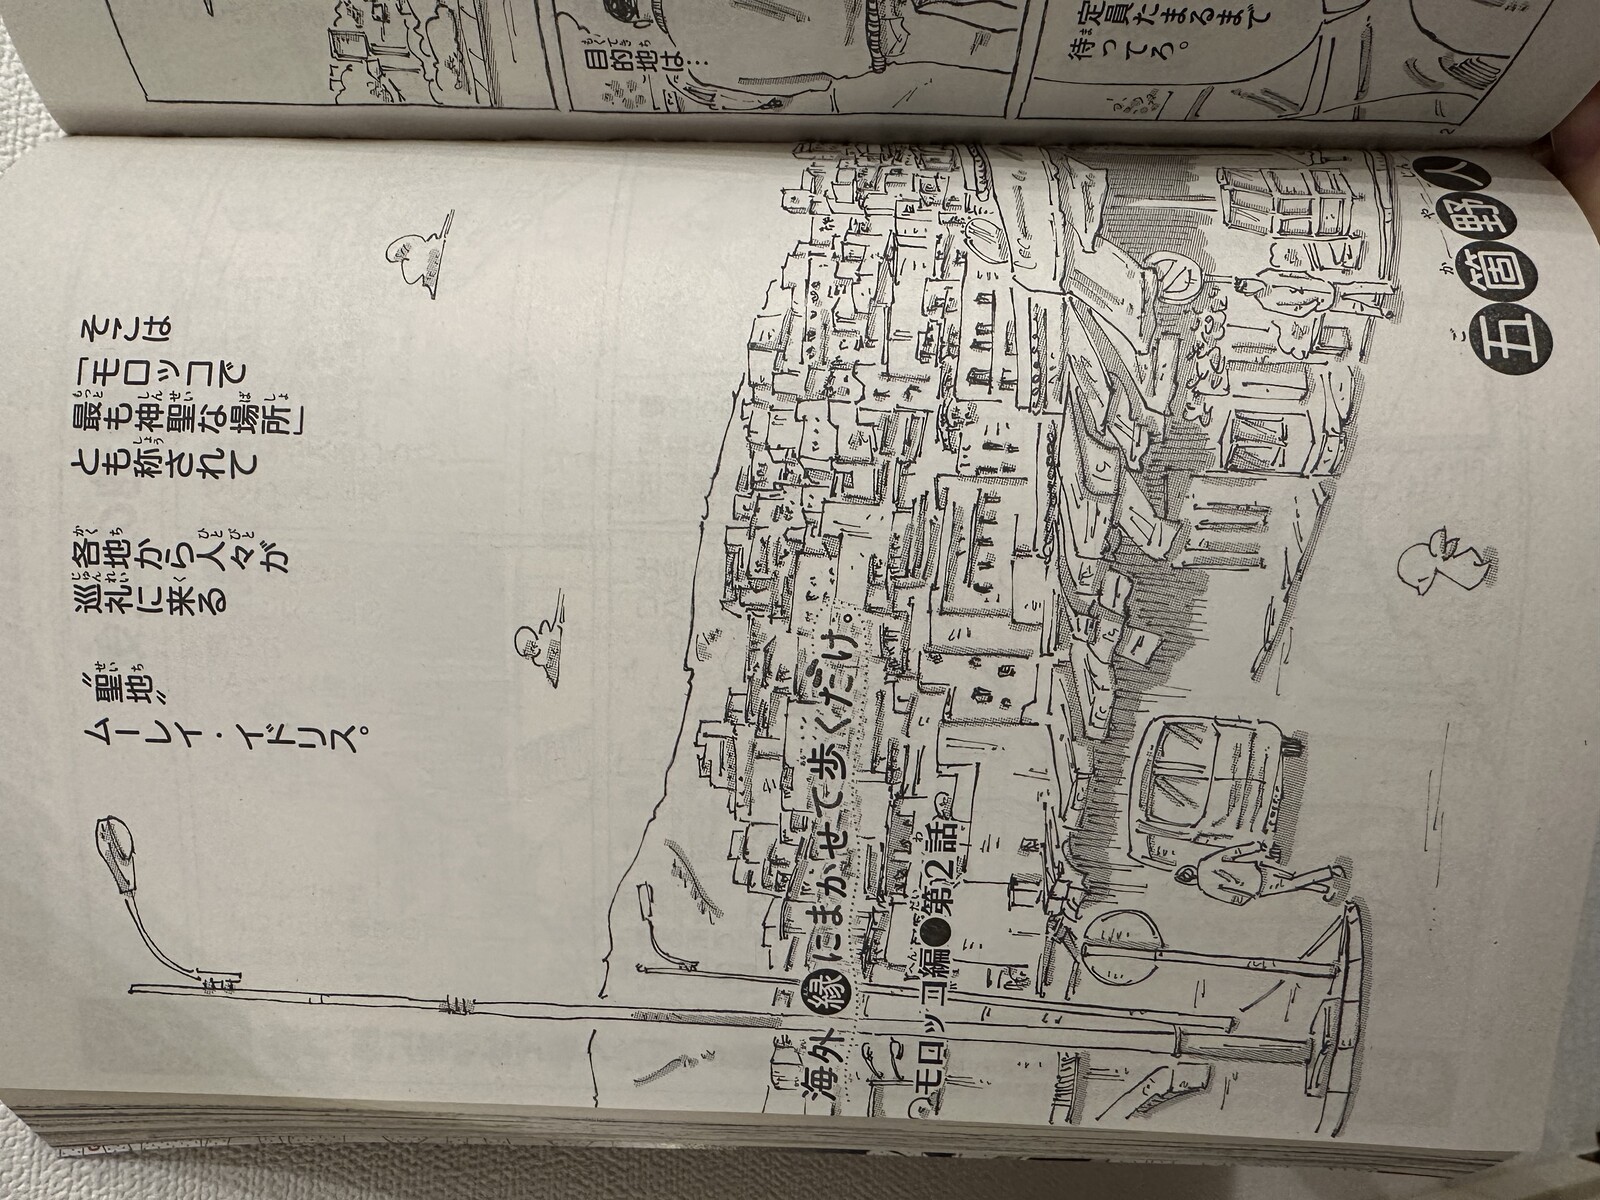 目的地は…
定員たまるまで
待ってろ。
2
そこは
「モロッコで
最も神聖な場所」
とも称されて
各地から人々が
巡礼に来る
〝聖地〟
ムーレイ・イドリス。
海外縁にまかせて歩くだけ。
モロッコ編●第2話
五箇野人